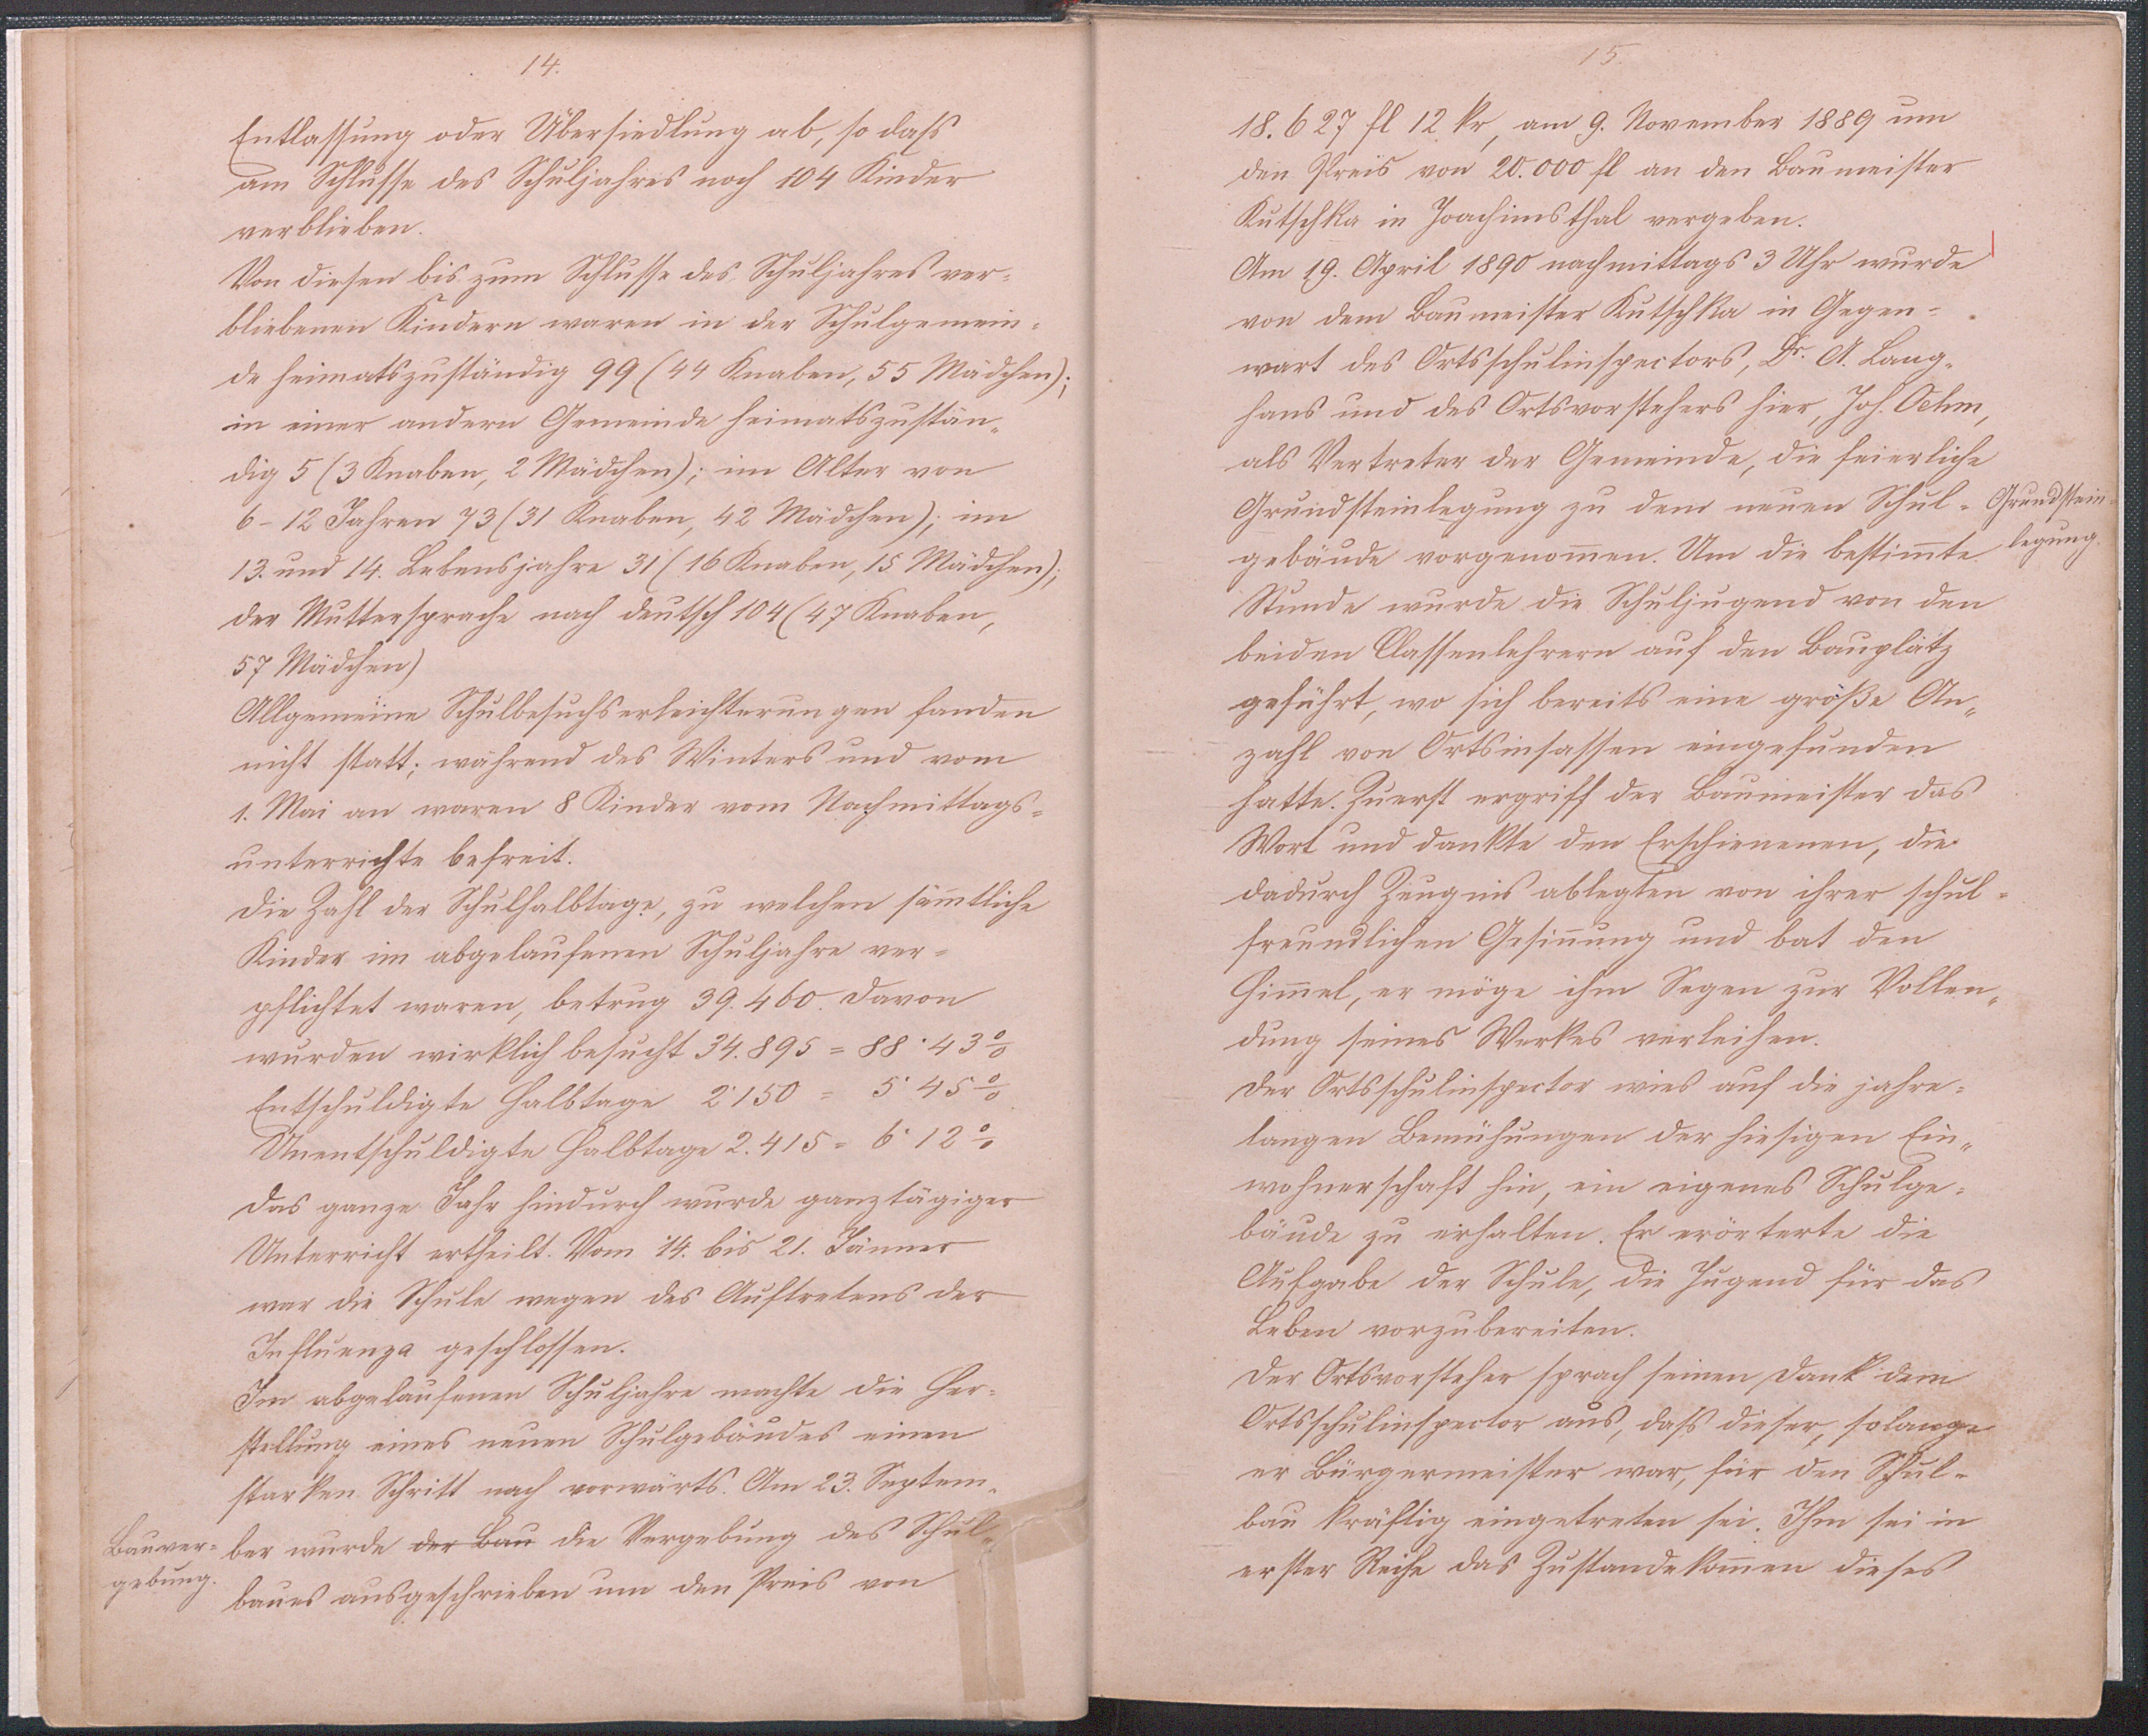 14.
Entlassung oder Übersiedlung ab, so dass
am Schlusse des Schuljahres noch 104 Kinder
verblieben.
Von diesen bis zum Schlusse des Schuljahres ver-
bliebenen Kindern waren in der Schulgemein-
de heimatszuständig 99 (44 Knaben, 55 Mädchen);
in einer andern Gemeinde heimatszustän-
dig 5 (3 Knaben, 2 Mädchen); im Alter von
6-12 Jahren 73 (31 Knaben, 42 Mädchen); im
13. und 14. Lebensjahre 31 (16 Knaben, 15 Mädchen);
der Muttersprache nach deutsch 104 (47 Knaben,
57 Mädchen)
Allgemeine Schulbesuchserleichterungen fanden
nicht statt; während des Winters und vom
1. Mai an waren 8 Kinder vom Nachmittags-
unterrichte befreit.
Die Zahl der Schulhalbtage, zu welchen säm̄tliche
Kinder im abgelaufenen Schuljahre ver-
pflichtet waren, betrug 39.460. Davon
wurden wirklich besucht 34.895 = 88·43%
Entschuldigte Halbtage 2·150 = 5·45%
Unentschuldigte Halbtage 2.415 = 6·12%
Das ganze Jahr hindurch wurde ganztägiger
Unterricht ertheilt. Vom 14. bis 21. Jänner
war die Schule wegen des Auftretens der
Influenza geschlossen.
Im abgelaufenen Schuljahre machte die Her-
stellung eines neuen Schulgebäudes einen
starken Schritt nach vorwärts. Am 23. Septem-
Bauver-
gebung.
ber wurde der Bau die Vergebung des Schul-
baues ausgeschrieben um den Preis von
15
18.627 fl 12 kr, am 9. November 1889 um
den Preis von 20.000 fl an den Baumeister
Kutschka in Joachimsthal vergeben.
Am 19. April 1890 nachmittags 3 Uhr wurde
von dem Baumeister Kutschka in Gegen-
wart des Ortsschulinspectors, Dr. A. Lang-
hans und des Ortsvorstehers hier, Joh. Oehm,
als Vertreter der Gemeinde, die feierliche
Grundsteinlegung zu dem neuen Schul-
Grundstein-
legung.
gebäude vorgenom̄en. Um die bestim̄te
Stunde wurde die Schuljugend von den
beiden Classenlehrern auf den Bauplatz
geführt, wo sich bereits eine größe An-
zahl von Ortsinsassen eingefunden
hatte. Zuerst ergriff der Baumeister das
Wort und dankte den Erschienenen, die
dadurch Zeugnis ablegten von ihrer schul-
freundlichen Gesin̄ung und bat den
Him̄el, er möge ihm Segen zur Vollen-
dung seines Werkes verleihen.
Der Ortsschulinspector wies auf die jahre-
langen Bemühungen der hiesigen Ein-
wohnerschaft hin, ein eigenes Schulge-
bäude zu erhalten. Er erörterte die
Aufgabe der Schule, die Jugend für das
Leben vorzubereiten.
Der Ortsvorsteher sprach seinen Dank dem
Ortsschulinspector aus, dass dieser, solange
er Bürgermeister war, für den Schul-
bau kräftig eingetreten sei. Ihm sei in
erster Reihe das Zustandekom̄en dieses